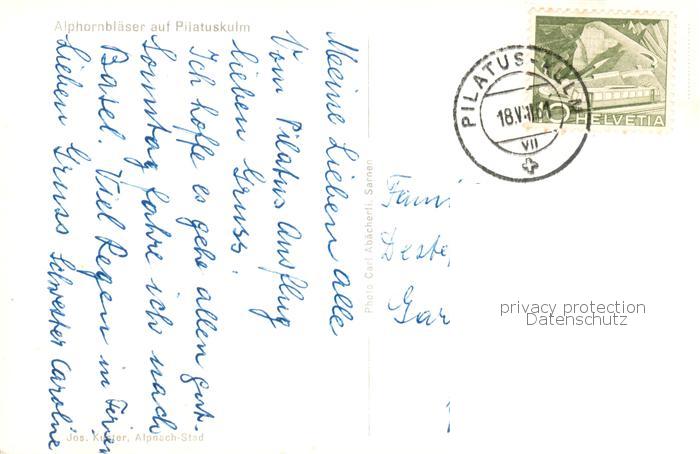 Alphornbläser auf Pilatuskulm
Meine Lieben alle
Vom Pilatus Ausflug
lieben Gruss.
Ich hoffe es gehe allen gut.
Sonntag fahre ich nach
Basel. Viel Regen in
Lieben Gruss Schwester Caroline
Jos. Küster, Alpnach-Stad
Photo Carl Abächerli, Sarnen
PILATUS-KULM
VII
HELVETIA
Fami
Gar
privacy protection
Datenschutz